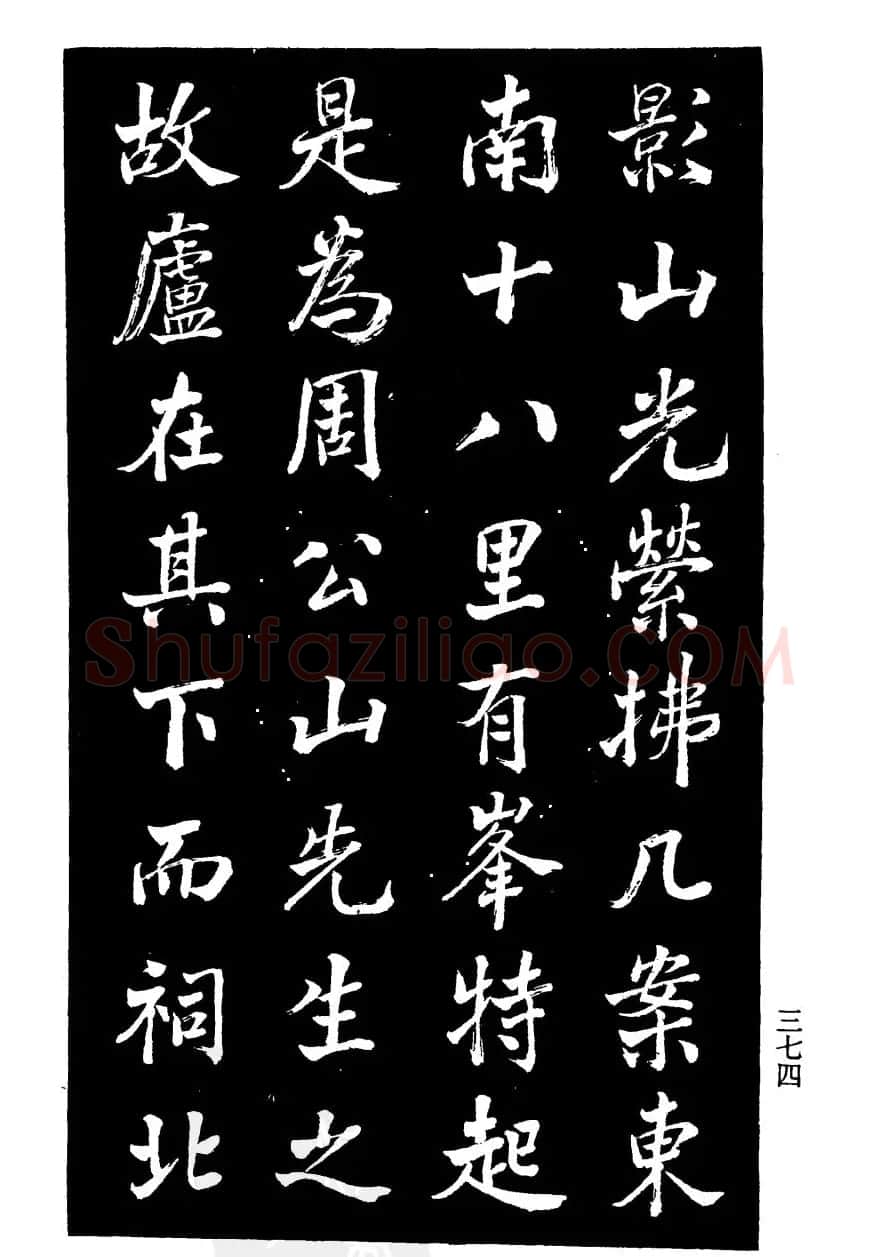 影山光縈拂几案東
南十八里有峯特起
是為周公山先生之
故廬在其下而祠北
三七四
Shufaziligao.COM